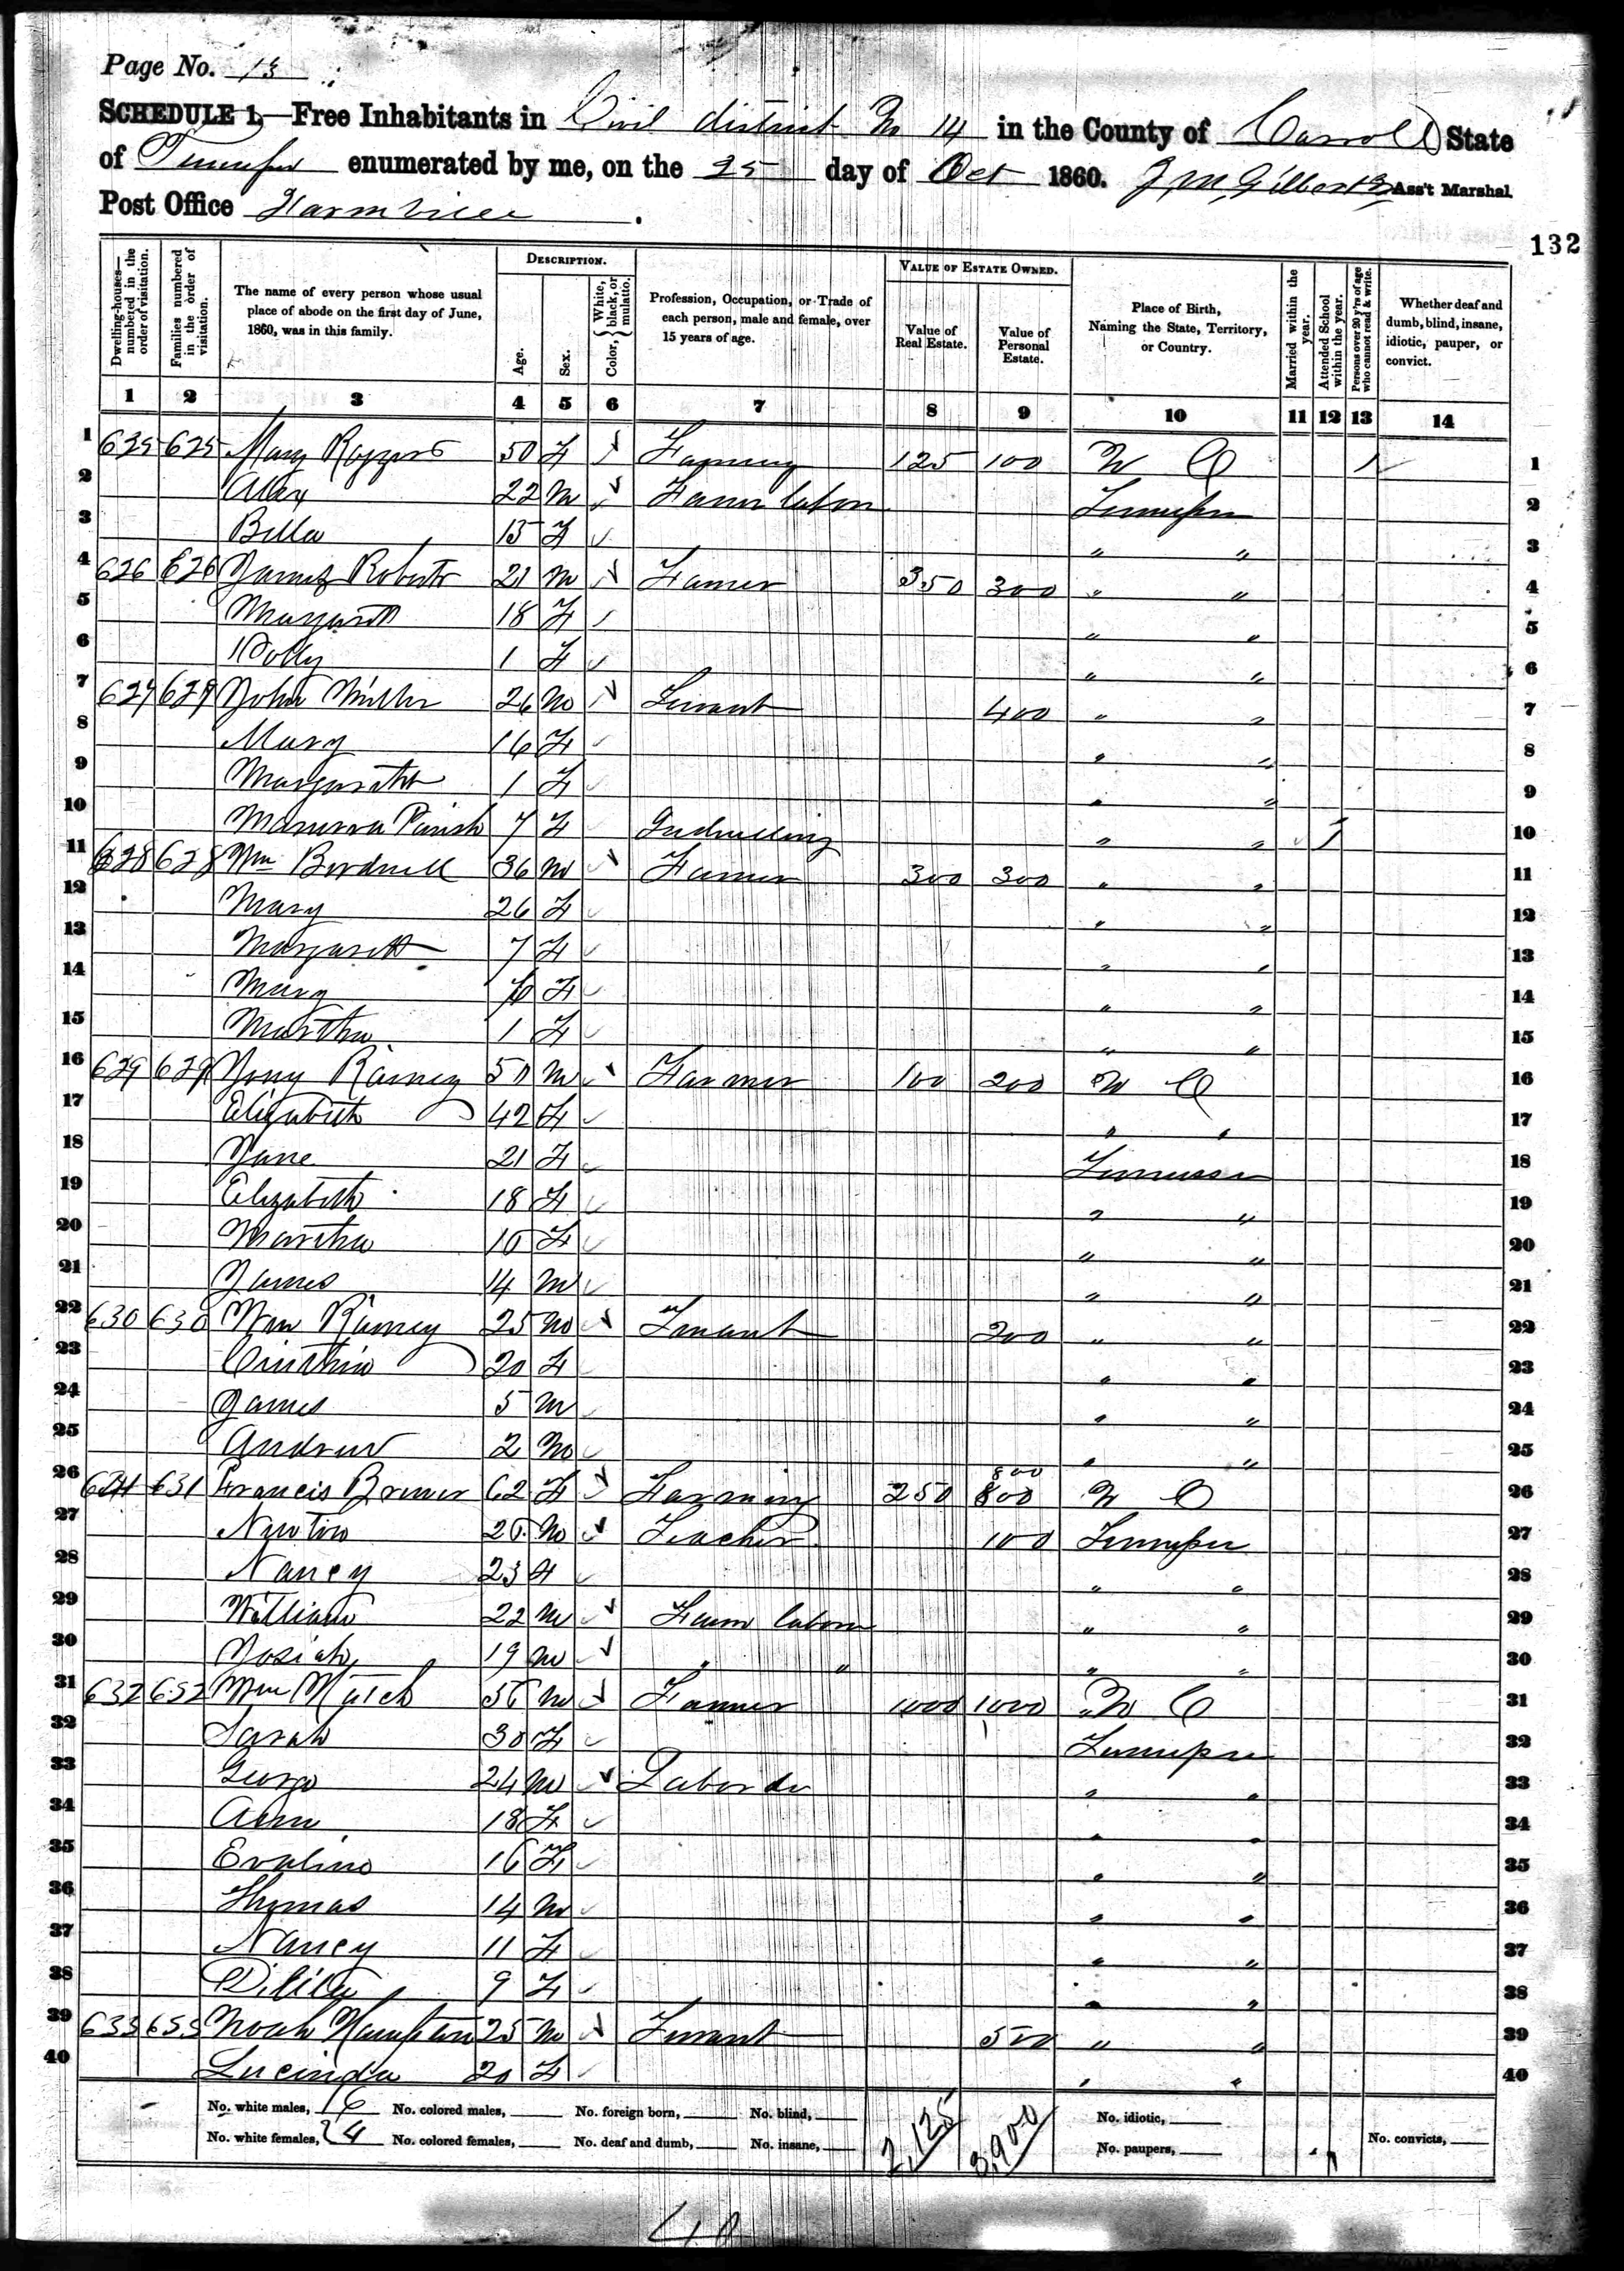 Page No. 13
SCHEDULE 1.—Free Inhabitants in Civil district No 14 in the County of Carroll State
of Tennessee enumerated by me, on the 25 day of Oct 1860. J M Gilbert Ass't Marshal.
Post Office Farmville.
132
Dwelling-houses—numbered in the order of visitation.
Families numbered in the order of visitation.
The name of every person whose usual place of abode on the first day of June, 1860, was in this family.
DESCRIPTION.
Age.
Sex.
Color, { White, black, or mulatto.
Profession, Occupation, or Trade of each person, male and female, over 15 years of age.
VALUE OF ESTATE OWNED.
Value of Real Estate.
Value of Personal Estate.
Place of Birth, Naming the State, Territory, or Country.
Married within the year.
Attended School within the year.
Persons over 20 y'rs of age who cannot read & write.
Whether deaf and dumb, blind, insane, idiotic, pauper, or convict.
1 2 3 4 5 6 7 8 9 10 11 12 13 14
1 625 625 Mary 50 F Farming 125 100 N C 1 1
2 Alex 22 M Farm labor Tennessee 2
3 F " " 3
4 626 626 James Roberts 21 M Farmer 350 300 " " 4
5 Margarett 18 F " " 5
6 Polly 1 F " " 6
7 627 627 John Miller 26 M Tenant 400 " " 7
8 Mary 16 F " " 8
9 1 F " " 9
10 Parish 7 F " " 1 10
11 628 628 Wm 36 M Farmer 300 300 " " 11
12 Mary 26 F " " 12
13 Margarett 7 F " " 13
14 Mary F " " 14
15 Martha 1 F " " 15
16 629 629 Rainey 50 M Farmer 100 200 N C 16
17 Elizabeth 42 F " " 17
18 Jane 21 F Tennessee 18
19 Elizabeth 18 F " " 19
20 Martha F " " 20
21 James 14 M " " 21
22 630 630 Wm Rainey 25 M Tenant 200 " " 22
23 20 F " " 23
24 James 5 M " " 24
25 Andrew 2 M " " 25
26 631 Francis Brewer 62 F Farming 250 800 800 N C 26
27 Newton M Teacher 100 Tennessee 27
28 Nancy 23 F " " 28
29 William 22 M Farm labor " " 29
30 Josiah 19 M " " " " 30
31 632 632 Wm 56 M Farmer 1000 1000 N C 31
32 Sarah 30 F Tennessee 32
33 George 24 M " " 33
34 Ann 18 F " " 34
35 Evaline 16 F " " 35
36 Thomas 14 M " " 36
37 Nancy 11 F " " 37
38 9 F " " 38
39 633 633 Noah Hampton 25 M Tenant 500 " " 39
40 Lucinda 20 F " " 40
No. white males, 16 No. colored males, No. foreign born, No. blind, 2,125 3,900 No. idiotic,
No. white females, 24 No. colored females, No. deaf and dumb, No. insane, No. paupers, 1 No. convicts,
40